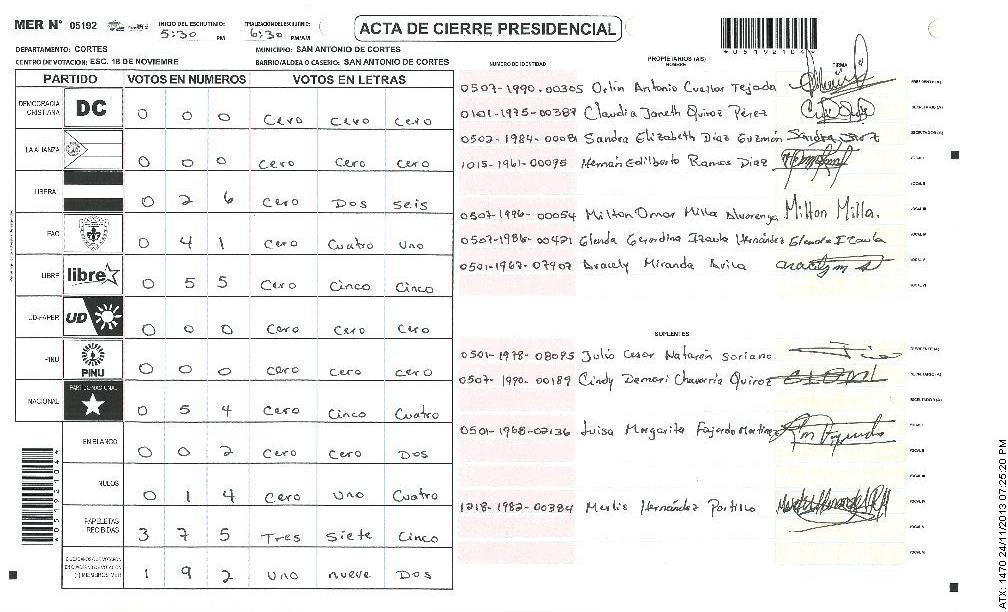 MER N° 05192 INICIO DEL ESCRUTINIO: 5:30 PM 6:30 PM/AM
ACTA DE CIERRE PRESIDENCIAL
*05192104*
DEPARTAMENTO: CORTES MUNICIPIO: SAN ANTONIO DE CORTES
CENTRO DE VOTACION: ESC. 18 DE NOVIEMRE BARRIO/ALDEA O CASERIO: SAN ANTONIO DE CORTES
PARTIDO VOTOS EN NUMEROS VOTOS EN LETRAS
DEMOCRACIA CRISTIANA DC 0 0 0 Cero Cero Cero
LA ALIANZA 0 0 0 Cero Cero Cero
LIBERAL 0 2 6 Cero Dos Seis
PAC 0 4 1 Cero Cuatro Uno
LIBRE libre 0 5 5 Cero Cinco Cinco
UD-FAPER UD 0 0 0 Cero Cero Cero
PINU PINU 0 0 0 Cero Cero Cero
NACIONAL PARTIDO NACIONAL 0 5 4 Cero Cinco Cuatro
EN BLANCO 0 0 2 Cero Cero Dos
NULOS 0 1 4 Cero Uno Cuatro
PAPELETAS RECIBIDAS 3 7 5 Tres Siete Cinco
1 9 2 Uno nueve Dos
*05192104*
NUMERO DE IDENTIDAD PROPIETARIOS (AS) NOMBRE FIRMA
0507-1990-00305 Orlin Antonio Cuellar Tejada PRESIDENTE(A)
0101-1975-00389 Claudia Janeth Quiroz Pérez SECRETARIO(A)
0502-1984-00081 Sandra Elizabeth Diaz Guzmán Sandra Diaz ESCRUTADOR(A)
1015-1961-00095 Hernán Edilberto Ramos Diaz VOCAL I
VOCAL II
0507-1996-00054 Milton Omar Milla Alvarenga Milton Milla. VOCAL III
0507-1986-00421 Glenda Geraldina Izaula Hernández Glenda Izaula VOCAL IV
0501-1967-07907 Aracely Miranda Avila VOCAL V
VOCAL VI
SUPLENTES
0501-1978-08095 Julio Cesar Natarén Soriano PRESIDENTE(A)
0507-1990-00189 Cindy Demari Chavarria Quiroz SECRETARIO(A)
ESCRUTADOR(A)
0501-1968-02136 Luisa Margarita Fajardo Martinez VOCAL I
VOCAL II
VOCAL III
1218-1982-00384 Merlis Hernández Portillo VOCAL IV
VOCAL V
VOCAL VI
ATX: 1470 24/11/2013 07:25:20 PM